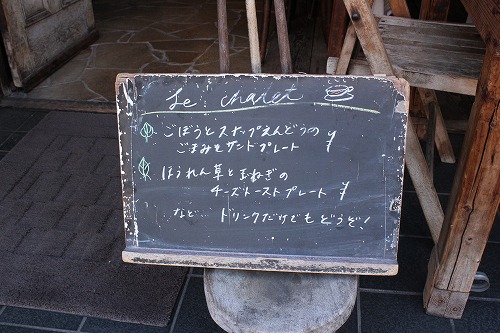 Le chalet
ごぼうとスナップえんどうの
ごまみそサンドプレート
ほうれん草と玉ねぎの
チーズトーストプレート
など… ドリンクだけでもどうぞ!